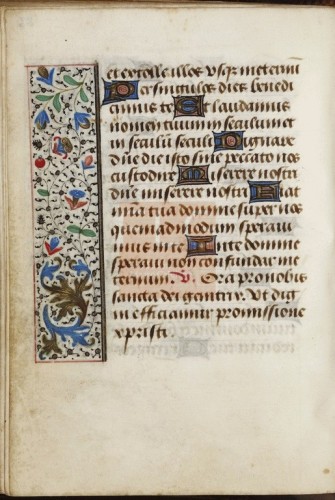 et extolle illos usq; in eternu
Per singulos dies benedi
cimus te Et laudamus
nomen tuum in seculum et
in seculu seculi Dignare
dne die isto sine peccato nos
custodire Miserere nostri
dne miserere nostri Fiat
mia tua domine super nos
quem admodum speraui
mus in te In te domine
speraui non confundar in e
ternum V Ora pro nobis
sancta dei genitrix Ut dig
ni efficiamur promissione
xpristi